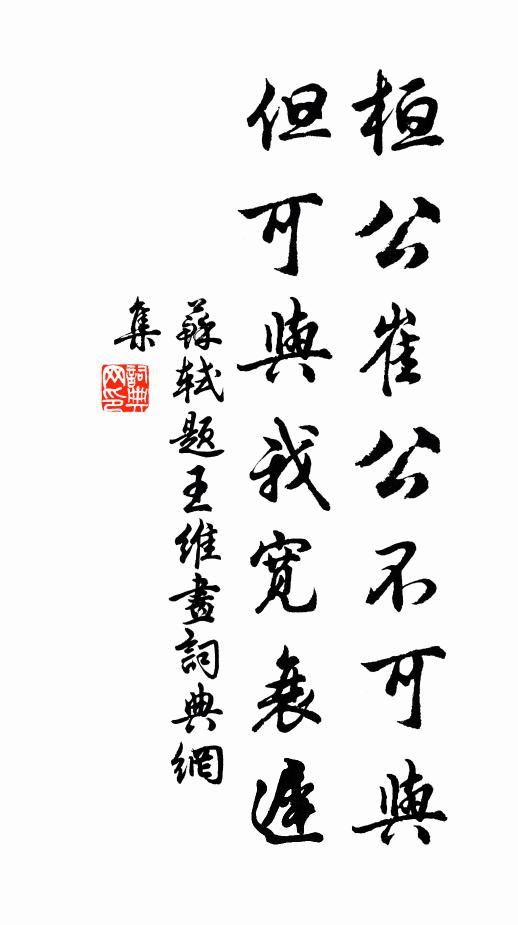 桓公崔公不可與
但可與我寬衰遲
蘇軾題王維畫詞典網
集
詞典网印